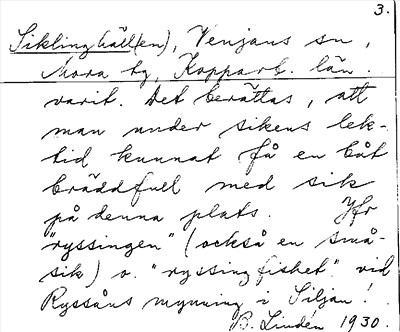 3.
Siklinghäll(en), Venjans sn,
Mora tg, Kopparb. län
varit. Det berättas, att
man under sikens lek-
tid kunnat få en båt
bräddfull med sik
på denna plats. Jfr
"ryssingen" (också en små-
sik) o. "ryssingfisket" vid
Ryssåns mynning i Siljan!
B. Lindén 1930.